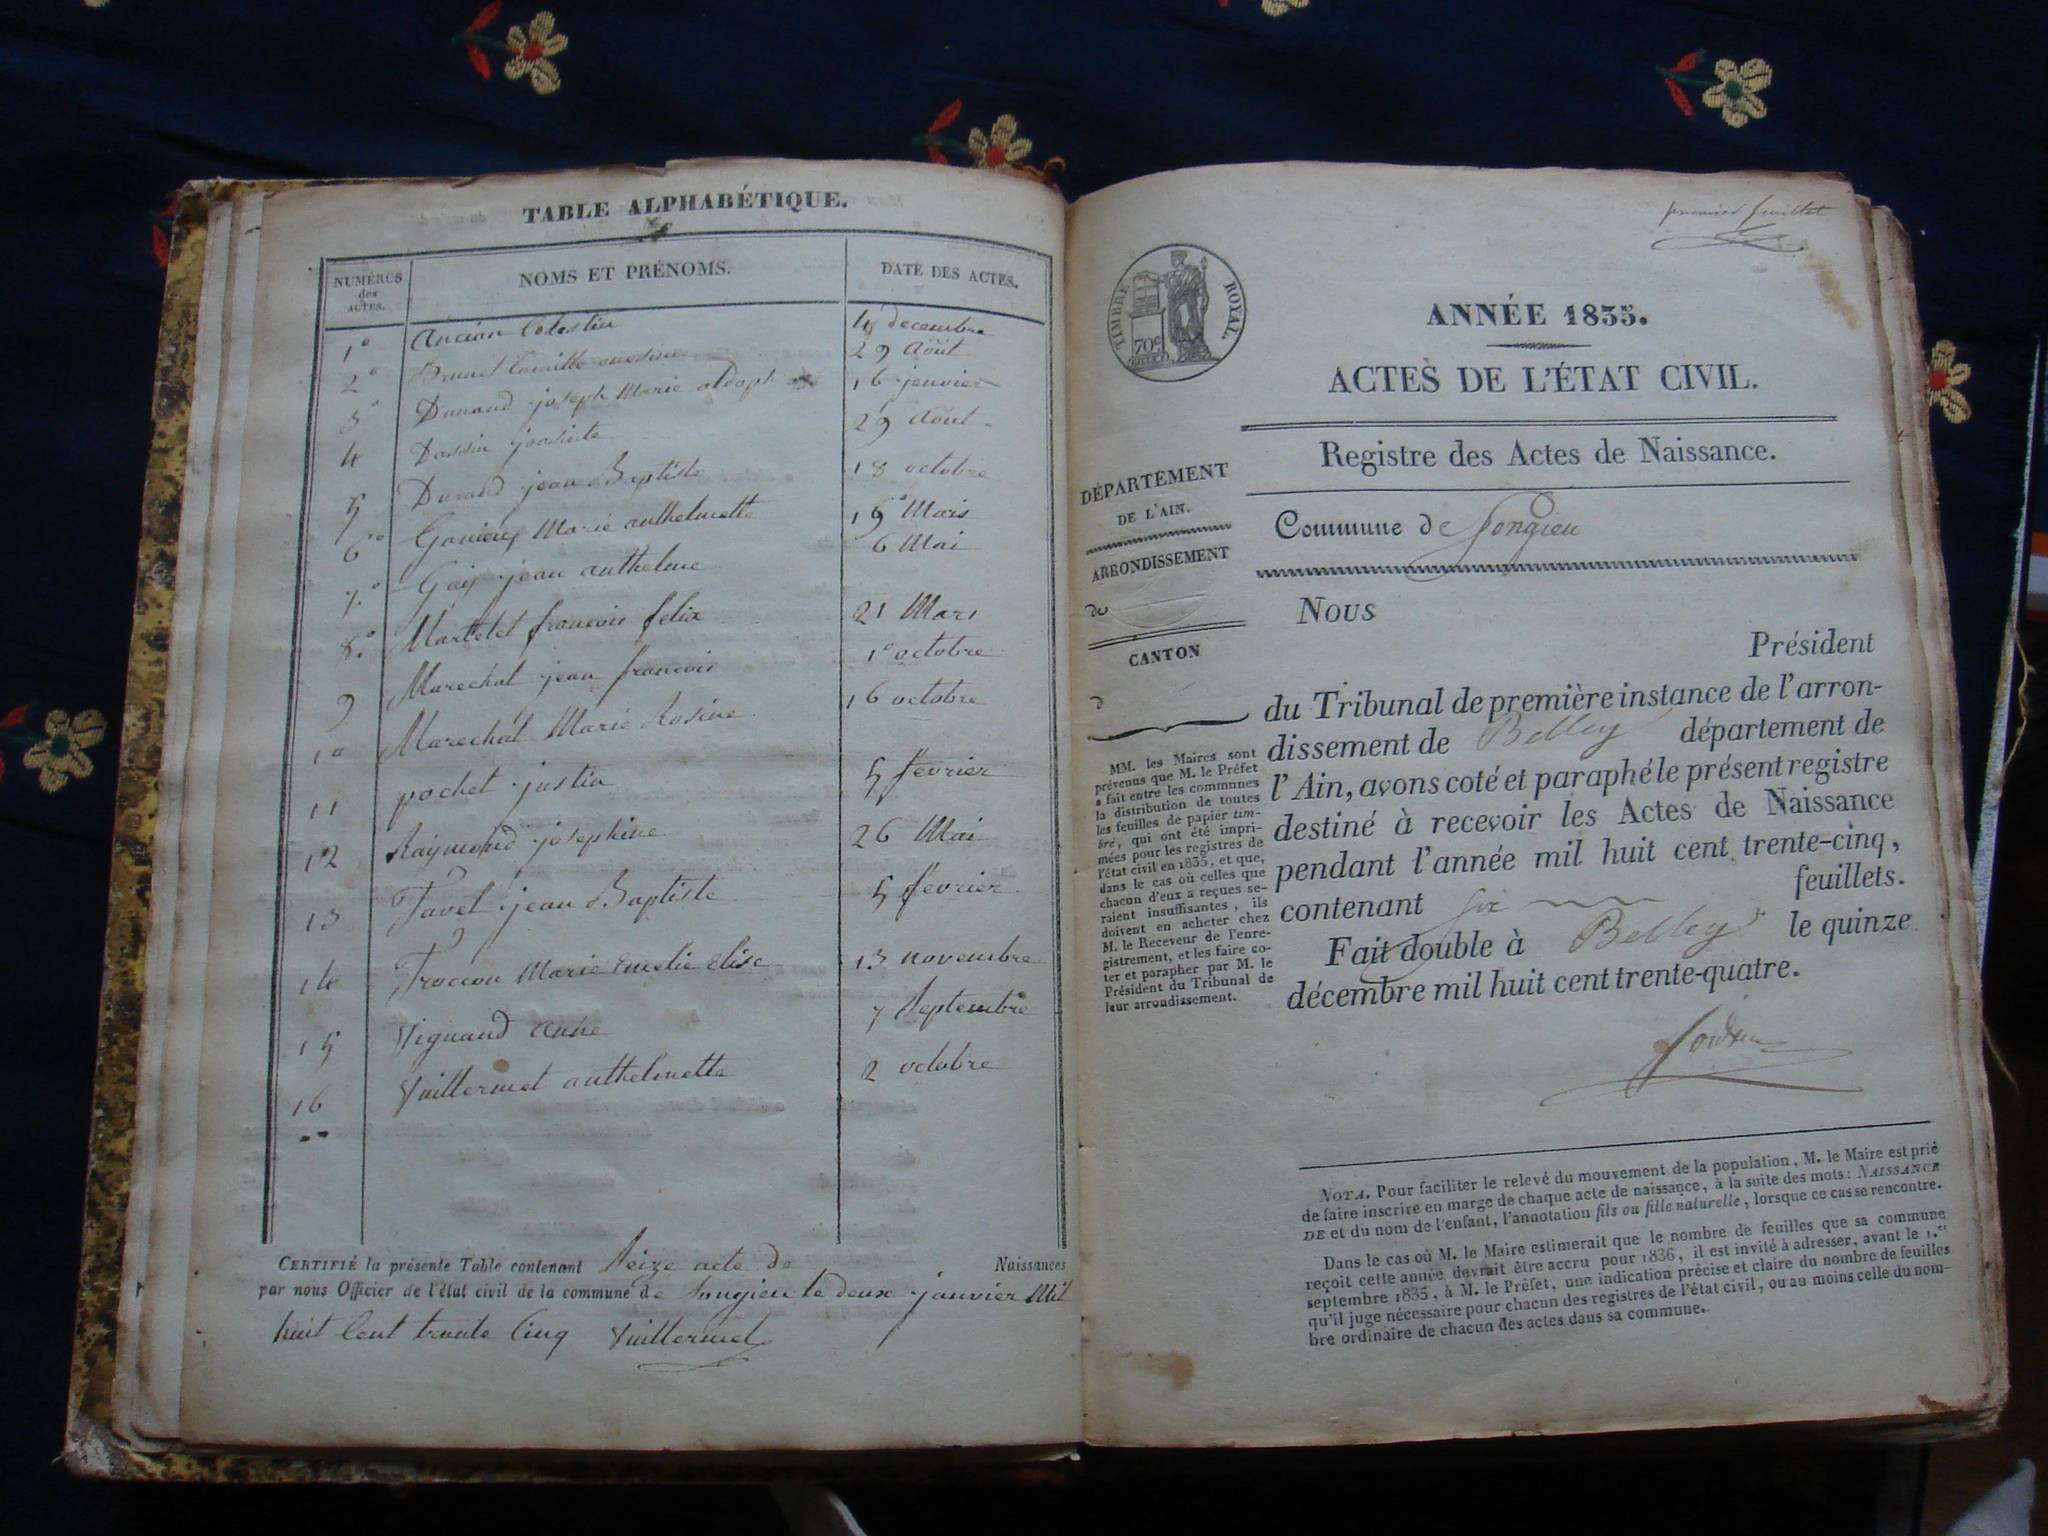 TABLE ALPHABÉTIQUE.
NUMÉROS des ACTES. NOMS ET PRÉNOMS. DATE DES ACTES.
1° Ancian Celestin 4 decembre
2° Brunet Camille 29 Août
3° Dunand joseph Marie aldoph 16 janvier
4 Dassin 29 Aout
5 Durand jean Baptiste 18 octobre
6° Marie anthelmette 19 Mars
7° Gay jean anthelme 6 Mai
8° Martelet francois felix 21 Mars
9 Marechal jean francois 1° octobre
10 Marechal Marie Rosine 16 octobre
11 pochet justin 5 fevrier
12 Raymond josephine 26 Mai
13 Tavel jean Baptiste 5 fevrier
14 Troccon Marie Emelie Elise 13 novembre
15 Vignand anne 7 Septembre
16 Vuillermet anthelmette 2 octobre
CERTIFIÉ la présente Table contenant Seize acte de Naissances
par nous Officier de l'état civil de la commune de Songieu le deux janvier Mil
huit Cent trente Cinq Vuillermet
premier feuillet
TIMBRE ROYAL.
70c
ANNÉE 1835.
ACTES DE L'ÉTAT CIVIL.
Registre des Actes de Naissance.
Commune de Songieu
DÉPARTEMENT
DE L'AIN.
ARRONDISSEMENT
de
CANTON
d
MM. les Maires sont
prévenus que M. le Préfet
a fait entre les communes
la distribution de toutes
les feuilles de papier tim-
bré, qui ont été impri-
mées pour les registres de
l'état civil en 1835, et que,
dans le cas où celles que
chacun d'eux a reçues se-
raient insuffisantes, ils
doivent en acheter chez
M. le Receveur de l'enre-
gistrement, et les faire co-
ter et parapher par M. le
Président du Tribunal de
leur arrondissement.
NOUS
Président
du Tribunal de première instance de l'arron-
dissement de Belley département de
l'Ain, avons coté et paraphé le présent registre
destiné à recevoir les Actes de Naissance
pendant l'année mil huit cent trente-cinq,
contenant Six feuillets.
Fait double à Belley le quinze
décembre mil huit cent trente-quatre.
NOTA. Pour faciliter le relevé du mouvement de la population, M. le Maire est prié
de faire inscrire en marge de chaque acte de naissance, à la suite des mots: NAISSANCE
DE et du nom de l'enfant, l'annotation fils ou fille naturelle, lorsque ce cas se rencontre.
Dans le cas où M. le Maire estimerait que le nombre de feuilles que sa commune
reçoit cette année devrait être accru pour 1836, il est invité à adresser, avant le 1.er
septembre 1835, à M. le Préfet, une indication précise et claire du nombre de feuilles
qu'il juge nécessaire pour chacun des registres de l'état civil, ou au moins celle du nom-
bre ordinaire de chacun des actes dans sa commune.